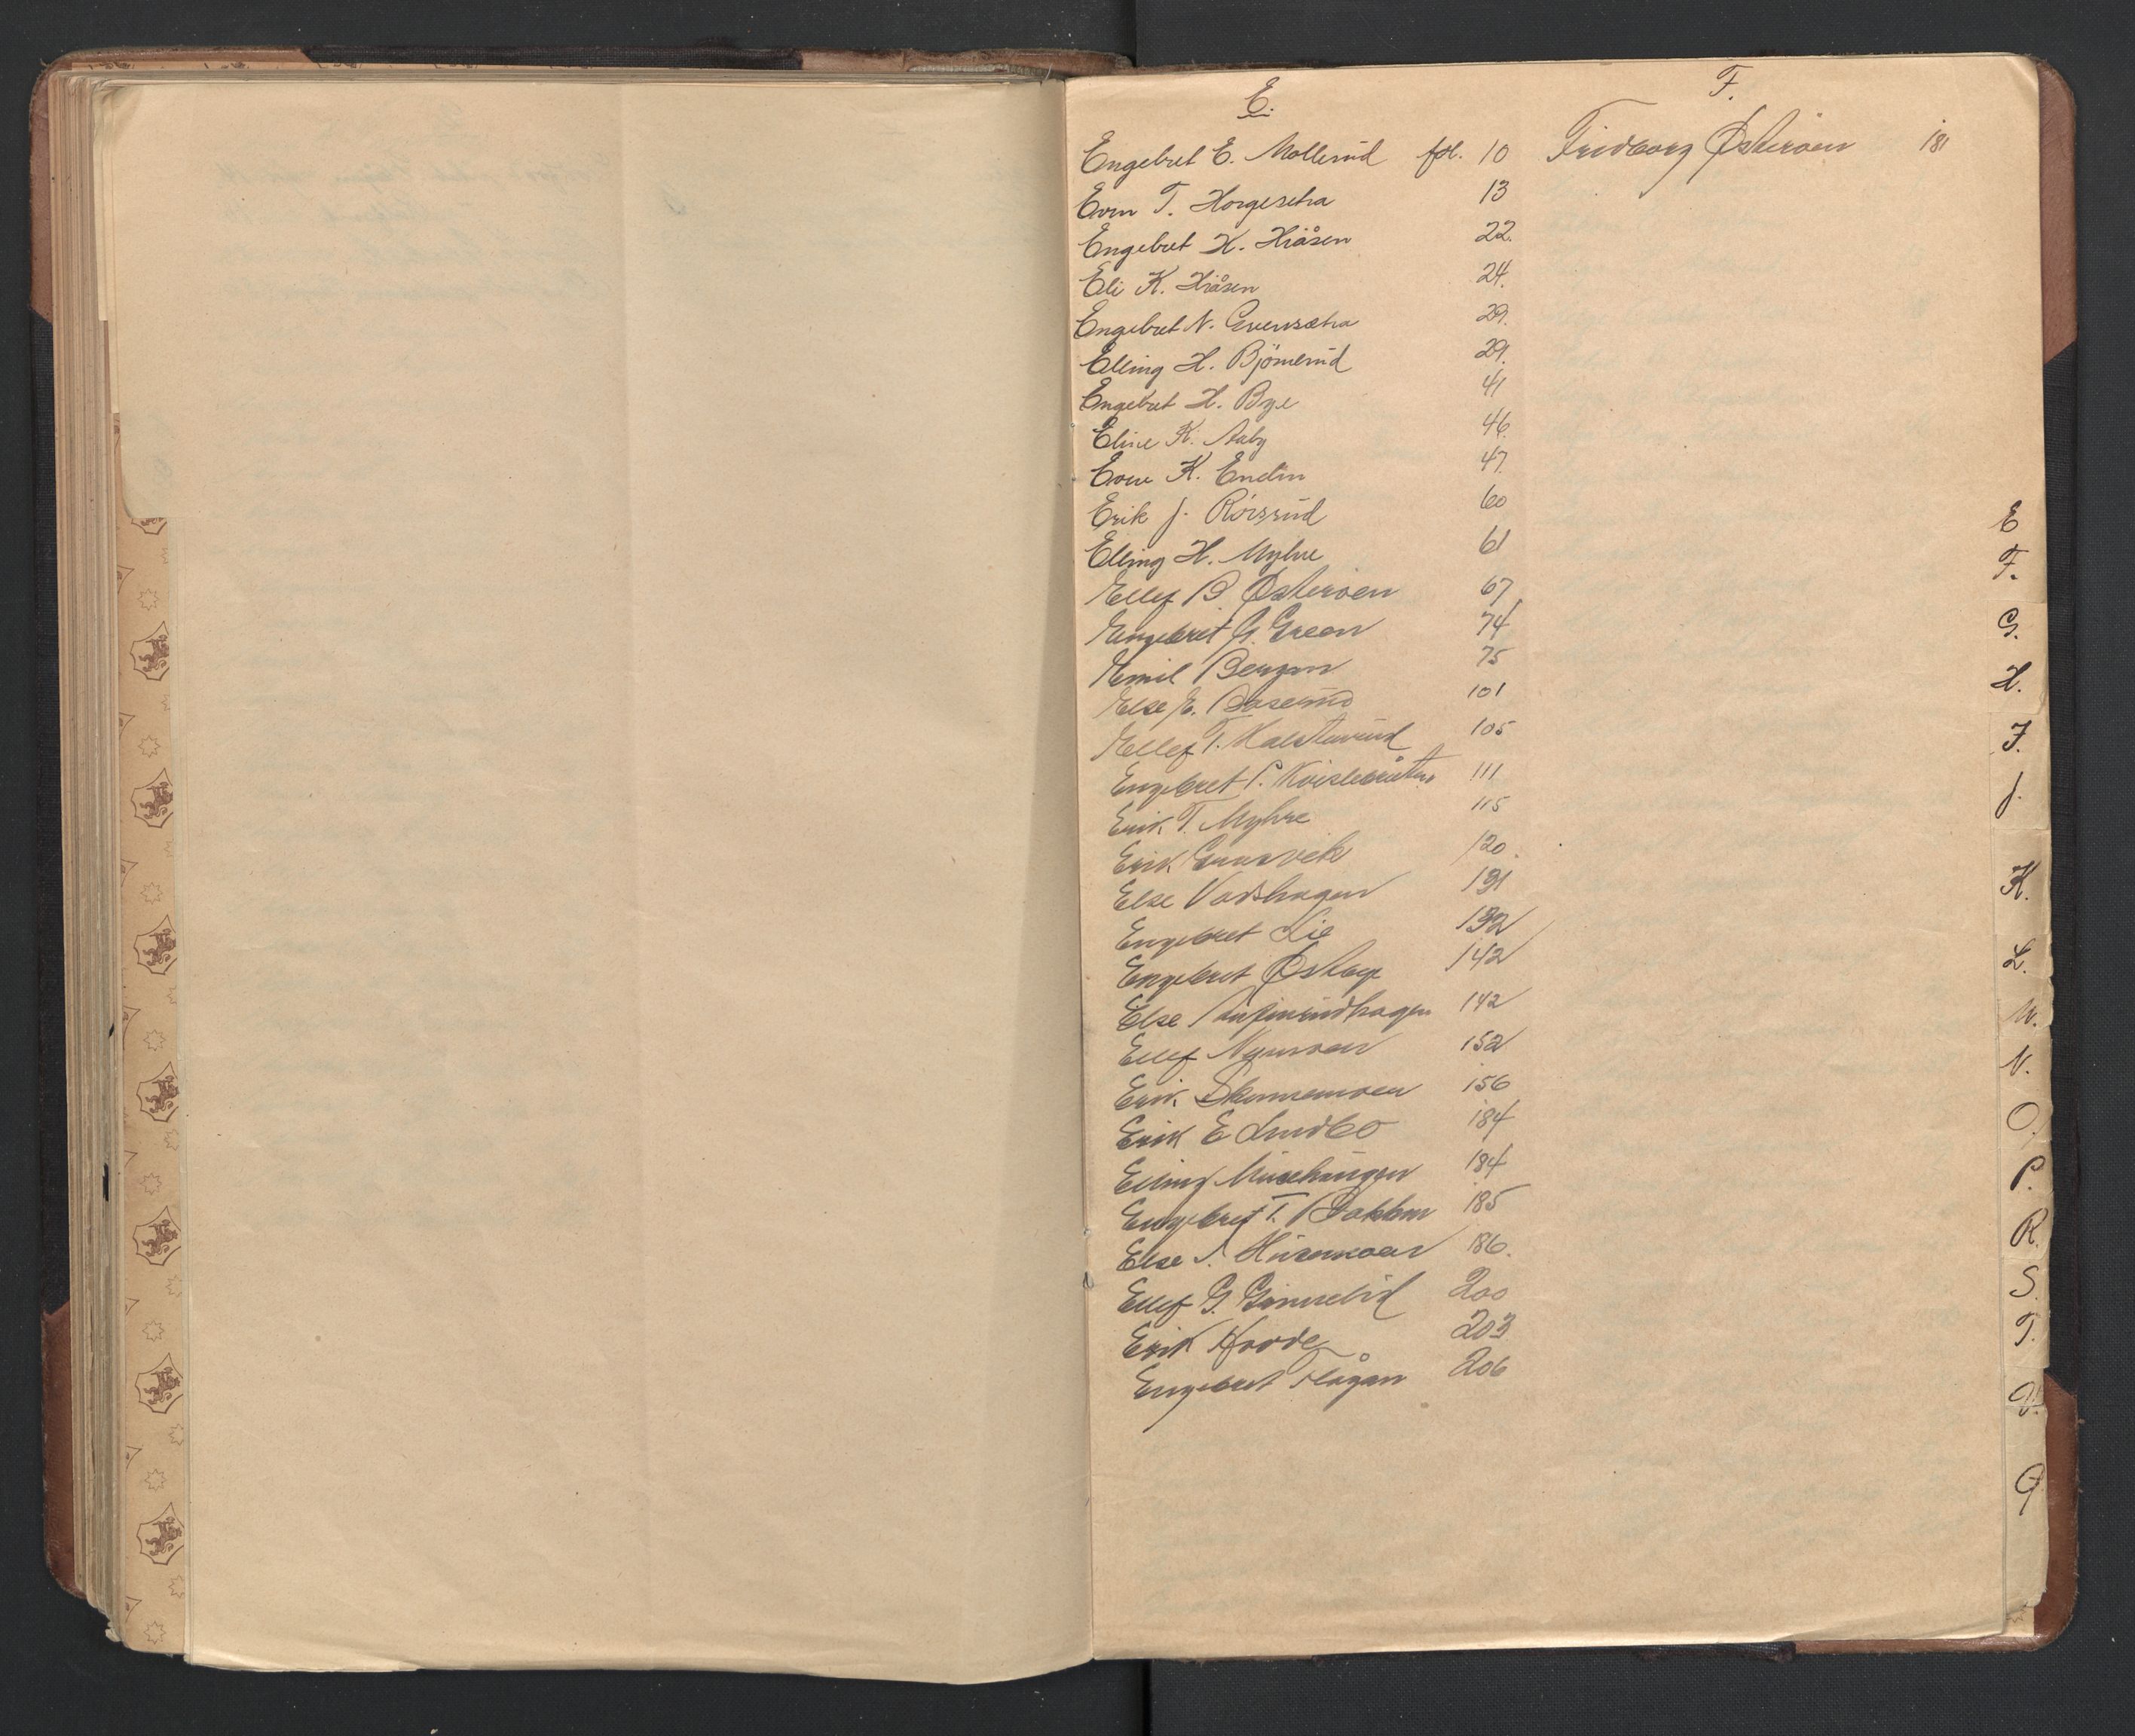 E.
Engebret E. Mollerud fol. 10
Even T. Horgesetra 13
Engebret K. Hråsen 22.
Eli K. Hråsen 24.
Engebret N. Evensætra 29.
Elling H. Björnerud 29.
Engebret H. Bye 41
Eline K. Aaby 46.
Even K. Endin 47.
Erik J. Rörsrud 60
Elling H. Myhre 61
Ellef B Østeroen 67
Engebret G. Green 74
Emil Bergan 75
Else E. Baserud 101
Ellef T. Kalsterud 105
Engebret P. Kvislebråten 111
Erik T. Myhre 115
Erik 120.
Else Vadshagen 131
Engebret Lie 132
Engebret Østage 142
Else 142
Ellef Nymoen 152
Erik Skinnemoen 156
Erik E Lindbo 184
Elling 184
Engebret T. Bakken 185
Else Husemoen 186.
Ellef G. Ginnelid 200
Erik Hovde 203
Engebret Flågan 206
F.
Fridborg Østeroen 181
E
F.
G.
H.
I.
J.
K.
L.
M.
N.
O.
P.
R.
S.
T.
V.
Ø